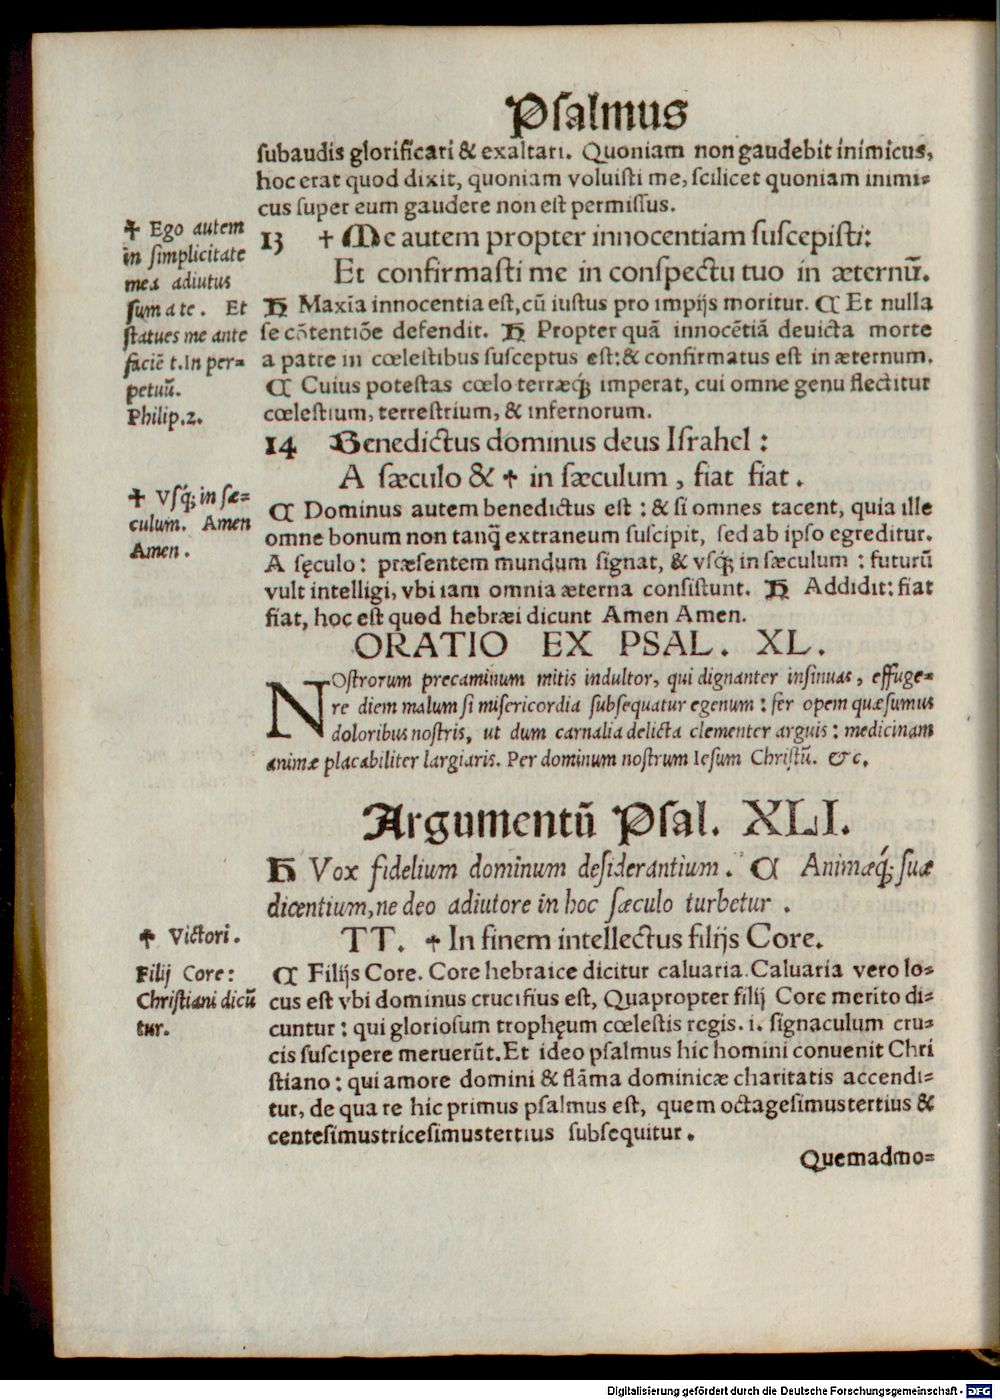 Psalmus
subaudis glorificari & exaltari. Quoniam non gaudebit inimicus,
hoc erat quod dixit, quoniam voluisti me, scilicet quoniam inimi⸗
cus super eum gaudere non est permissus.
✝ Ego autem
in simplicitate
mea adiutus
sum a te. Et
statues me ante
faciẽ t. In per⸗
petuũ.
Philip.2.
13 ✝ Me autem propter innocentiam suscepisti:
Et confirmasti me in conspectu tuo in æternũ.
H Maxia innocentia est, cũ iustus pro impijs moritur. C Et nulla
se cõtentiõe defendit. H Propter quã innocẽtiã deuicta morte
a patre in cœlestibus susceptus est: & confirmatus est in æternum.
C Cuius potestas cœlo terræq; imperat, cui omne genu flectitur
cœlestium, terrestrium, & infernorum.
14 Benedictus dominus deus Israhel:
A sæculo & ✝ in sæculum, fiat fiat.
✝ Vsq; in sæ⸗
culum. Amen
Amen.
C Dominus autem benedictus est: & si omnes tacent, quia ille
omne bonum non tanq̃ extraneum suscipit, sed ab ipso egreditur.
A sęculo: præsentem mundum signat, & vsq; in sæculum: futurũ
vult intelligi, vbi iam omnia æterna consistunt. H Addidit: fiat
fiat, hoc est quod hebræi dicunt Amen Amen.
ORATIO EX PSAL. XL.
NOstrorum precaminum mitis indultor, qui dignanter insinuas, effuge⸗
re diem malum si misericordia subsequatur egenum: fer opem quæsumus
doloribus nostris, ut dum carnalia delicta clementer arguis: medicinam
animæ placabiliter largiaris. Per dominum nostrum Iesum Christũ. &c.
Argumentũ Psal. XLI.
H Vox fidelium dominum desiderantium. C Animæq; suæ
dicentium, ne deo adiutore in hoc sæculo turbetur.
✝ Victori.
TT. ✝ In finem intellectus filijs Core.
Filij Core:
Christiani dicũ
tur.
C Filijs Core. Core hebraice dicitur caluaria. Caluaria vero lo⸗
cus est vbi dominus crucifius est, Quapropter filij Core merito di⸗
cuntur: qui gloriosum trophęum cœlestis regis. i. signaculum cru⸗
cis suscipere meruerũt. Et ideo psalmus hic homini conuenit Chri
stiano: qui amore domini & flãma dominicæ charitatis accendi⸗
tur, de qua re hic primus psalmus est, quem octagesimustertius &
centesimustricesimustertius subsequitur.
Quemadmo⸗
Digitalisierung gefördert durch die Deutsche Forschungsgemeinschaft - DFG